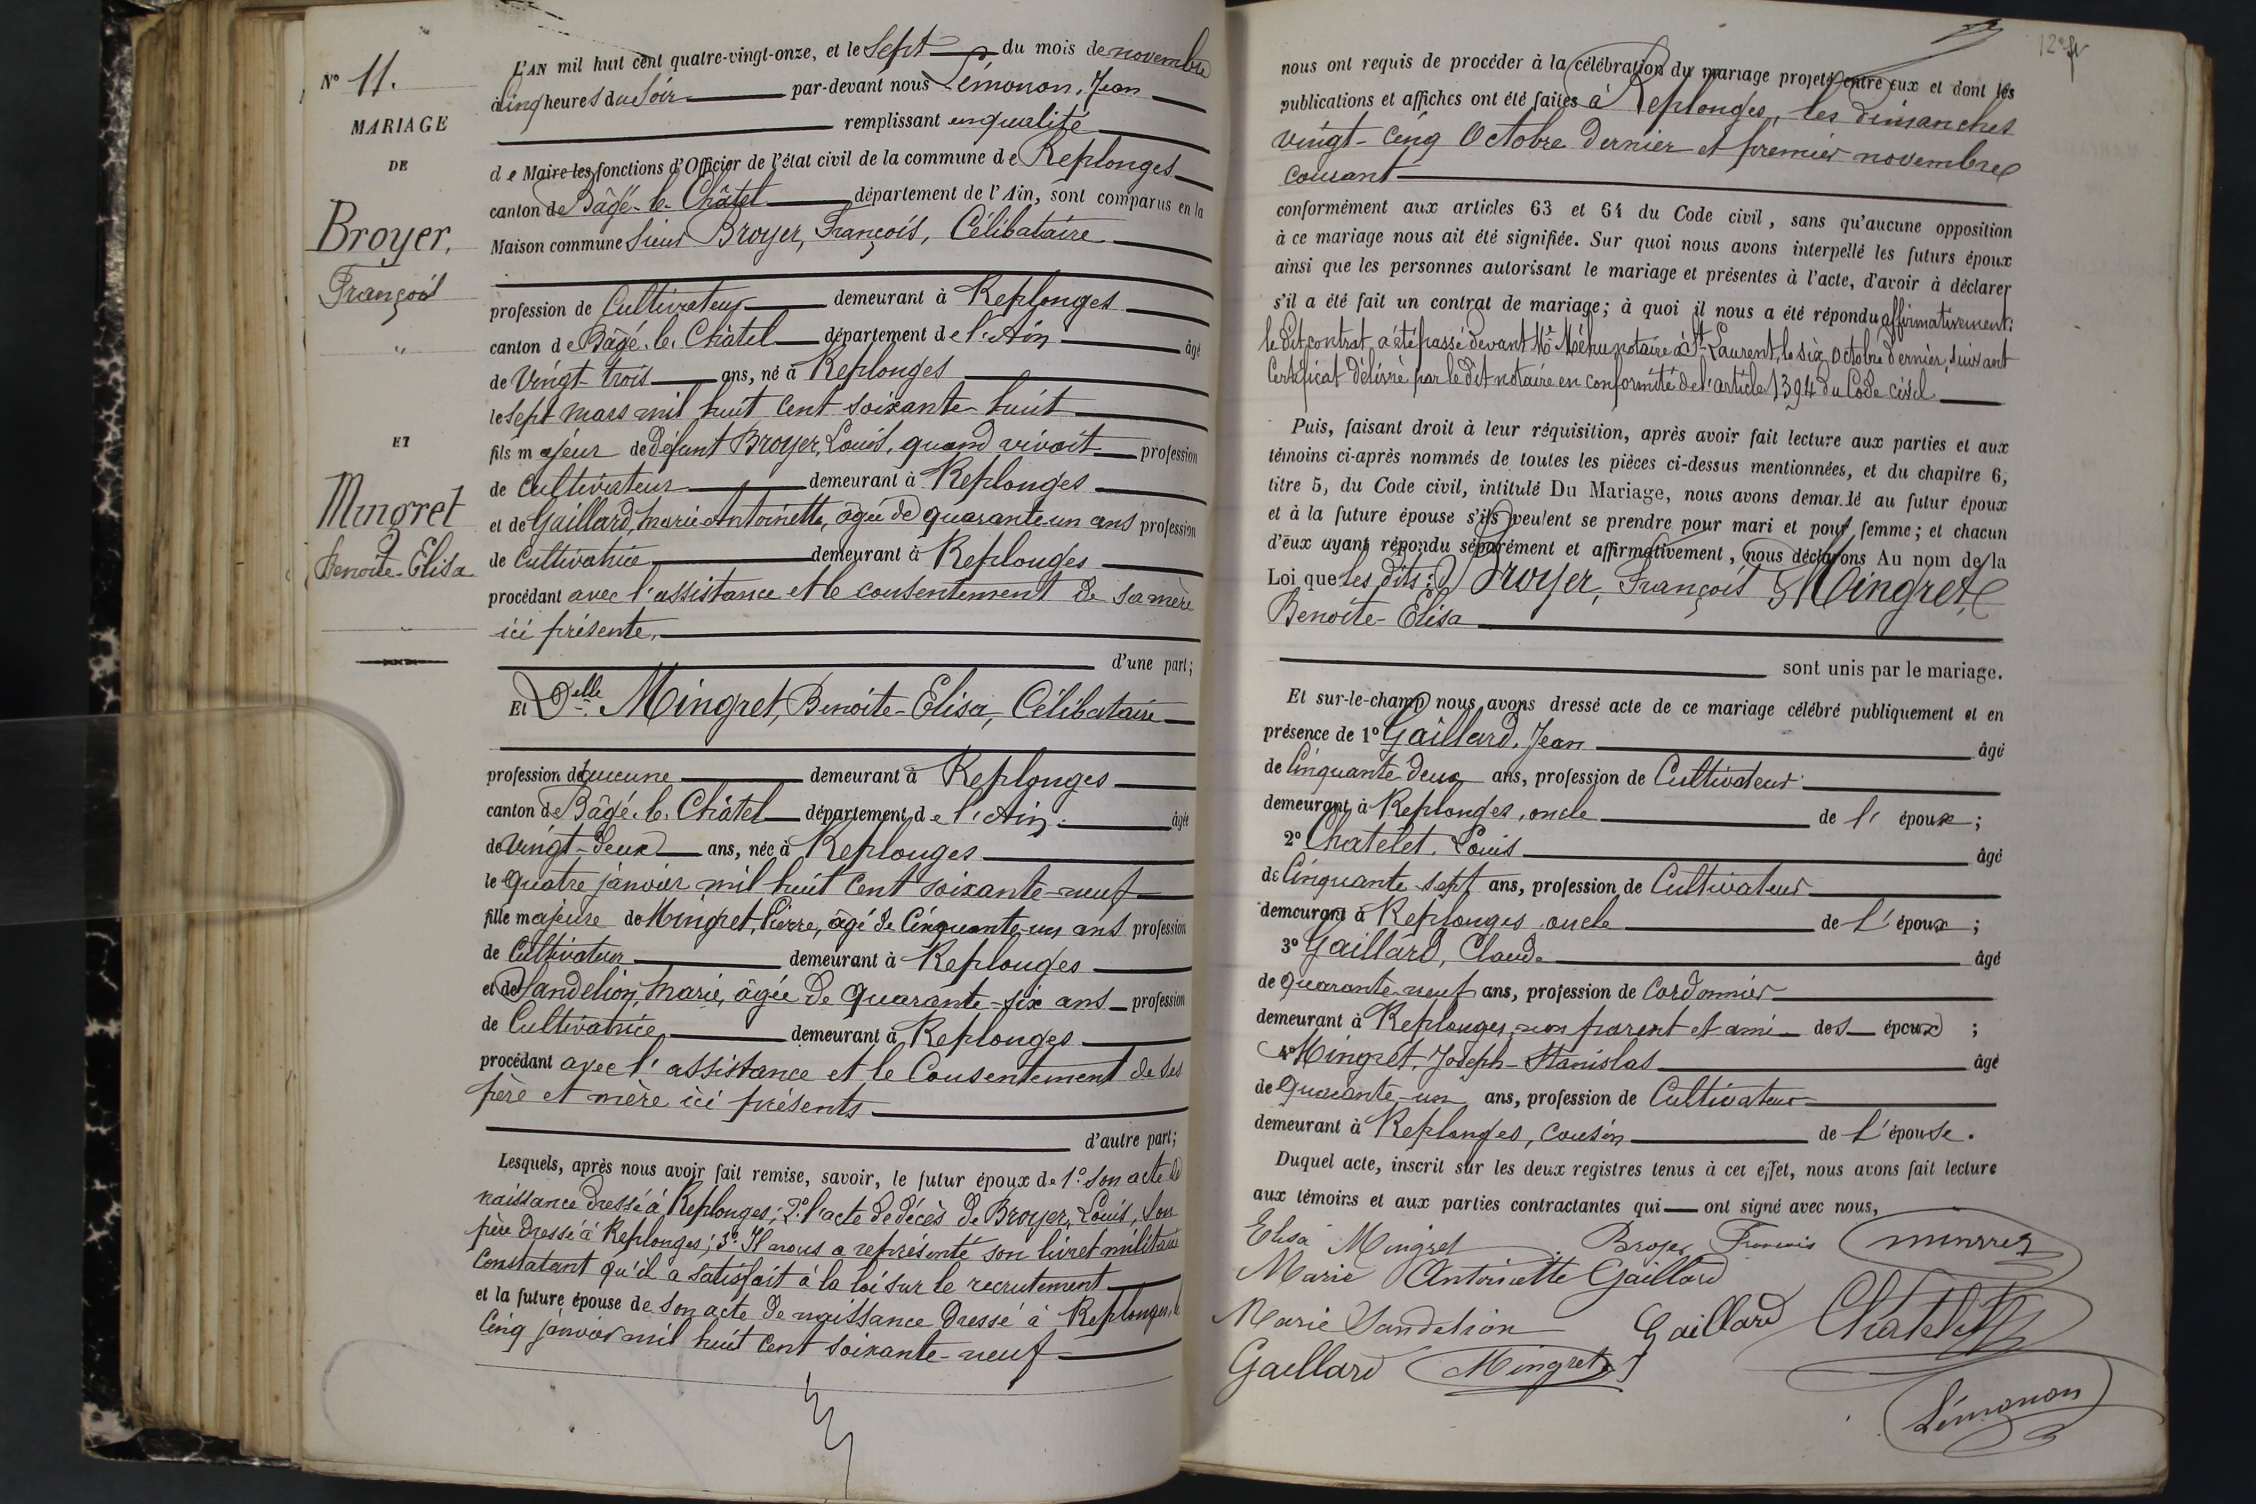 N° 11.
MARIAGE
DE
Broyer,
François
ET
Mingret
Benoite-Elisa
L'AN mil huit cent quatre-vingt-onze, et le Sept du mois de novembre
à cinq heures du Soir par-devant nous Lémonon, Jean
remplissant en qualité
de Maire les fonctions d'Officier de l'état civil de la commune de Replonges
canton de Bâgé-le-Châtel département de l'Ain, sont comparus en la
Maison commune Sieur Broyer, François, Célibataire
profession de Cultivateur demeurant à Replonges
canton de Bâgé-le-Châtel département de l'Ain âgé
de Vingt-trois ans, né à Replonges
le Sept mars mil huit cent soixante-huit
fils majeur de Défunt Broyer, Louis, quand vivait profession
de Cultivateur demeurant à Replonges
et de Gaillard, Marie Antoinette, âgée de quarante-un ans profession
de Cultivatrice demeurant à Replonges
procédant avec l'assistance et le consentement de sa mère
ici présente,
d'une part;
Et Delle Mingret, Benoite-Elisa, Célibataire
profession de aucune demeurant à Replonges
canton de Bâgé-le-Châtel département de l'Ain âgée
de Vingt-deux ans, née à Replonges
le quatre janvier mil huit cent soixante-neuf
fille majeure de Mingret, Pierre, âgé de Cinquante-un ans profession
de Cultivateur demeurant à Replonges
et de Dandelion, Marie, âgée de quarante-six ans profession
de Cultivatrice demeurant à Replonges
procédant avec l'assistance et le Consentement de ses
père et mère ici présents
d'autre part;
Lesquels, après nous avoir fait remise, savoir, le futur époux de 1° Son acte de
naissance dressé à Replonges; 2° l'acte de décès de Broyer, Louis, son
père dressé à Replonges; 3° Il nous a représenté son livret militaire
Constatant qu'il a satisfait à la loi sur le recrutement
et la future épouse de Son acte de naissance dressé à Replonges, le
Cinq janvier mil huit cent soixante-neuf
12e
nous ont requis de procéder à la célébration du mariage projeté entre eux et dont les
publications et affiches ont été faites à Replonges, les dimanches
vingt-cinq Octobre dernier et premier novembre
courant
conformément aux articles 63 et 64 du Code civil, sans qu'aucune opposition
à ce mariage nous ait été signifiée. Sur quoi nous avons interpellé les futurs époux
ainsi que les personnes autorisant le mariage et présentes à l'acte, d'avoir à déclarer
s'il a été fait un contrat de mariage; à quoi il nous a été répondu affirmativement.
le dit contrat a été passé devant Me Méhu notaire à St Laurent, le six Octobre dernier, suivant
Certificat délivré par le dit notaire en conformité de l'article 1394 du Code civil
Puis, faisant droit à leur réquisition, après avoir fait lecture aux parties et aux
témoins ci-après nommés de toutes les pièces ci-dessus mentionnées, et du chapitre 6,
titre 5, du Code civil, intitulé Du Mariage, nous avons demandé au futur époux
et à la future épouse s'ils veulent se prendre pour mari et pour femme; et chacun
d'eux ayant répondu séparément et affirmativement, nous déclarons Au nom de la
Loi que les dits: Broyer, François & Mingret,
Benoite-Elisa
sont unis par le mariage.
Et sur-le-champ nous avons dressé acte de ce mariage célébré publiquement et en
présence de 1° Gaillard, Jean âgé
de Cinquante-deux ans, profession de Cultivateur
demeurant à Replonges, oncle de l' époux;
2° Chatelet, Louis âgé
de Cinquante-sept ans, profession de Cultivateur
demeurant à Replonges oncle de l'époux;
3° Gaillard, Claude âgé
de quarante-neuf ans, profession de Cordonnier
demeurant à Replonges, non parent et ami des époux;
4° Mingret, Joseph-Stanislas âgé
de quarante-un ans, profession de Cultivateur
demeurant à Replonges, cousin de l'épouse.
Duquel acte, inscrit sur les deux registres tenus à cet effet, nous avons fait lecture
aux témoins et aux parties contractantes qui ont signé avec nous,
Elisa Mingret Broyer François
Marie Antoinette Gaillard
Marie Dandelion Gaillard Chatelet
Gaillard Mingret J
Lémonon